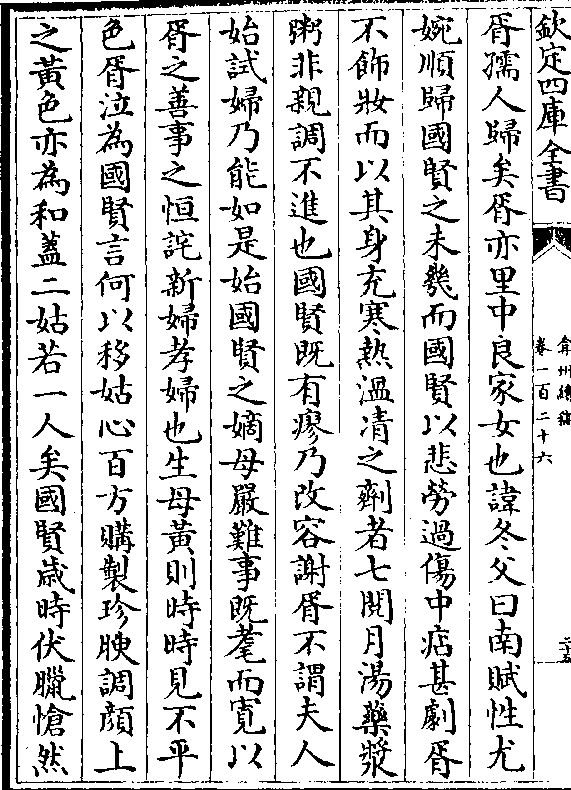 欽定四庫全書
弇州續稿
卷一百二十六
胥孺人歸矣胥亦里中良家女也諱冬父曰南賦性尤
婉順歸國賢之未幾而國賢以悲勞過傷中痁甚劇胥
不飾妝而以其身充寒熱溫凊之劑者七閱月湯藥漿
粥非親調不進也國賢既有瘳乃改容謝胥不謂夫人
始試婦乃能如是始國賢之嫡母嚴難事既耄而寬以
胥之善事之恒詫新婦孝婦也生母黃則時時見不平
色胥泣為國賢言何以移姑心百方購製珍腴調顏上
之黃色亦為和蓋二姑若一人矣國賢歲時伏臘愴然